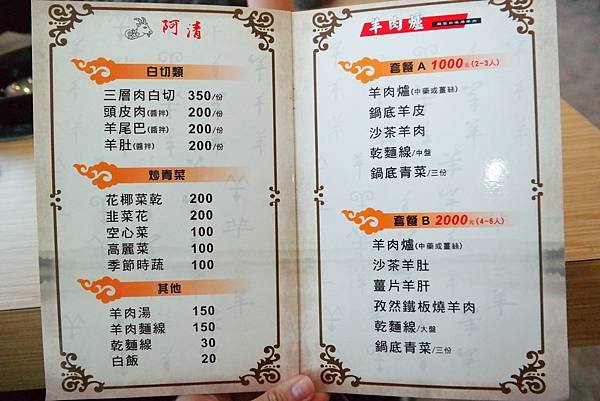 阿清
白切類
三層肉白切 350/份
頭皮肉(醬拌) 200/份
羊尾巴(醬拌) 200/份
羊肚(醬拌) 200/份
炒青菜
花椰菜乾 200
韭菜花 200
空心菜 100
高麗菜 100
季節時蔬 100
其他
羊肉湯 150
羊肉麵線 150
乾麵線 30
白飯 20
羊肉爐
套餐A 1000元(2-3人)
羊肉爐(中藥或薑絲)
鍋底羊皮
沙茶羊肉
乾麵線/中盤
鍋底青菜/三份
套餐B 2000元(4-6人)
羊肉爐(中藥或薑絲)
沙茶羊肚
薑片羊肝
孜然鐵板燒羊肉
乾麵線/大盤
鍋底青菜/三份